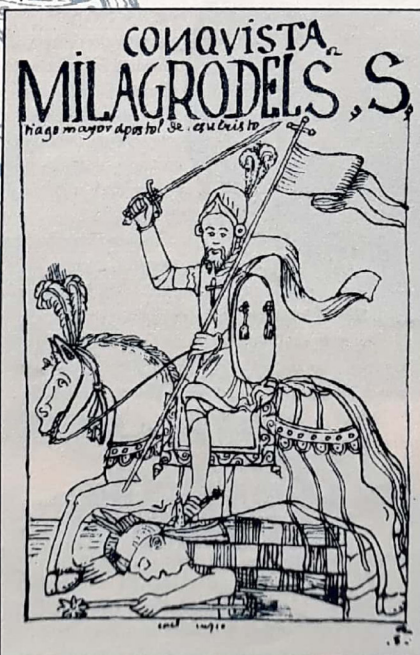 CONQVISTA
MILAGRO DEL S, S,
tiago mayor apostol de
en el cuzco